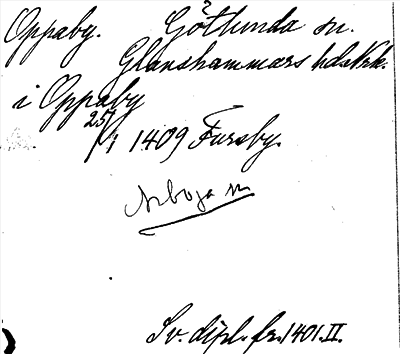 Oppaby. Götlunda sn.
Glanshammars hds Vrk.
i Oppaby
25/1 1409 Fursby.
Arboga sn
Sv. dipl. fr. 1401. II.